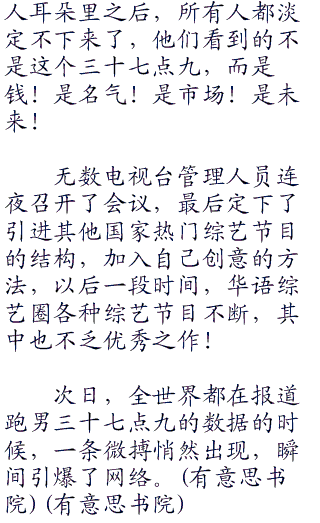 人耳朵里之后，所有人都淡
定不下来了，他们看到的不
是这个三十七点九，而是
钱！是名气！是市场！是未
来！
无数电视台管理人员连
夜召开了会议，最后定下了
引进其他国家热门综艺节目
的结构，加入自己创意的方
法，以后一段时间，华语综
艺圈各种综艺节目不断，其
中也不乏优秀之作！
次日，全世界都在报道
跑男三十七点九的数据的时
候，一条微搏悄然出现，瞬
间引爆了网络。(有意思书
院)(有意思书院)